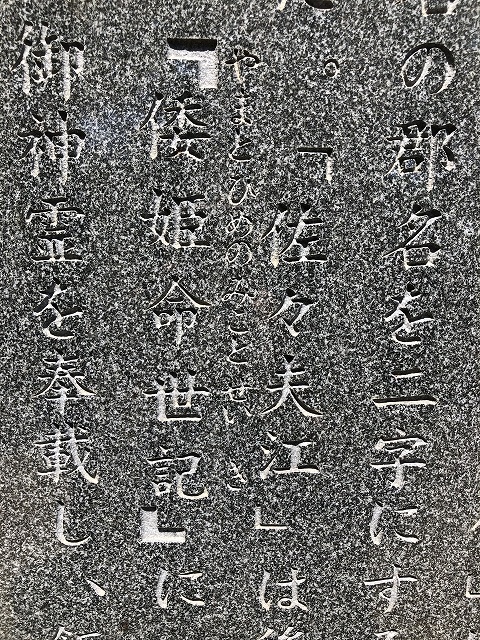 の郡名を二字にす
。「佐々夫江」は
やまとひめのみことせいき
『倭姫命世記』に
御神霊を奉載し、